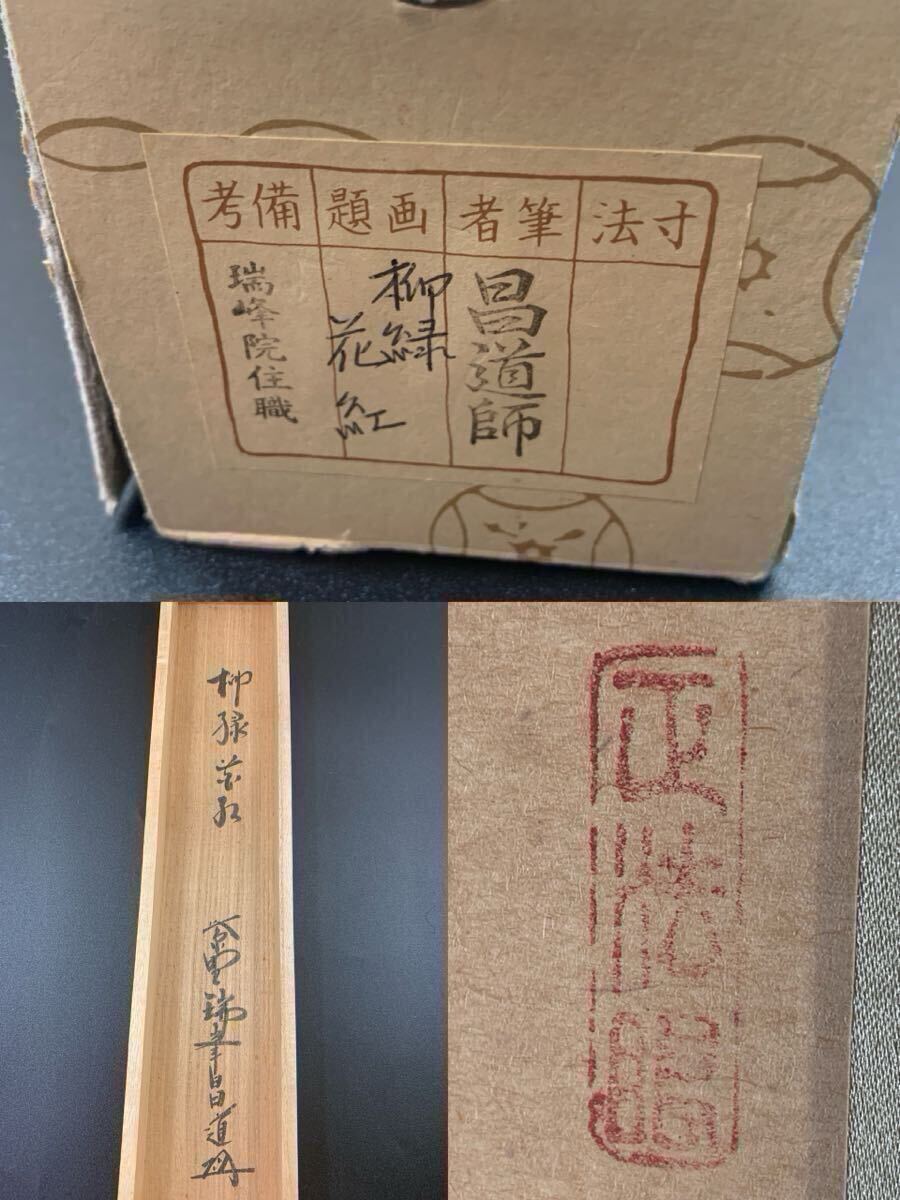 寸法
筆者
昌道師
画題
柳緑
花紅
備考
瑞峰院住職
柳緑花紅
紫野瑞峯昌道